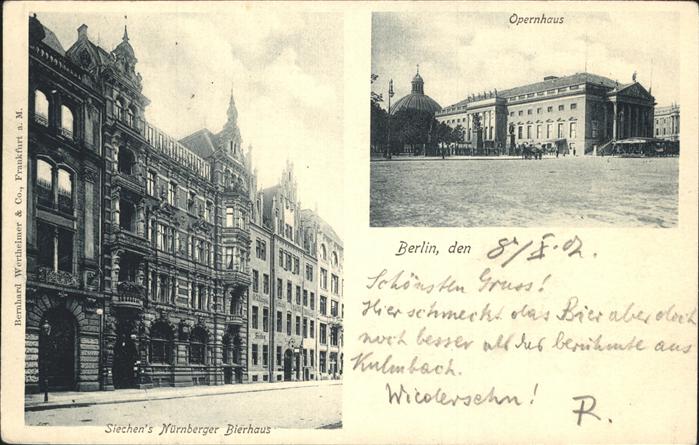 Opernhaus
Bernhard Wertheimer & Co., Frankfurt a. M.
Siechen's Nürnberger Bierhaus
Berlin, den 8/X. 02.
Schönsten Gruss!
Hier schmeckt das Bier aber doch
noch besser als das berühmte aus
Kulmbach.
Wiedersehn!
R.